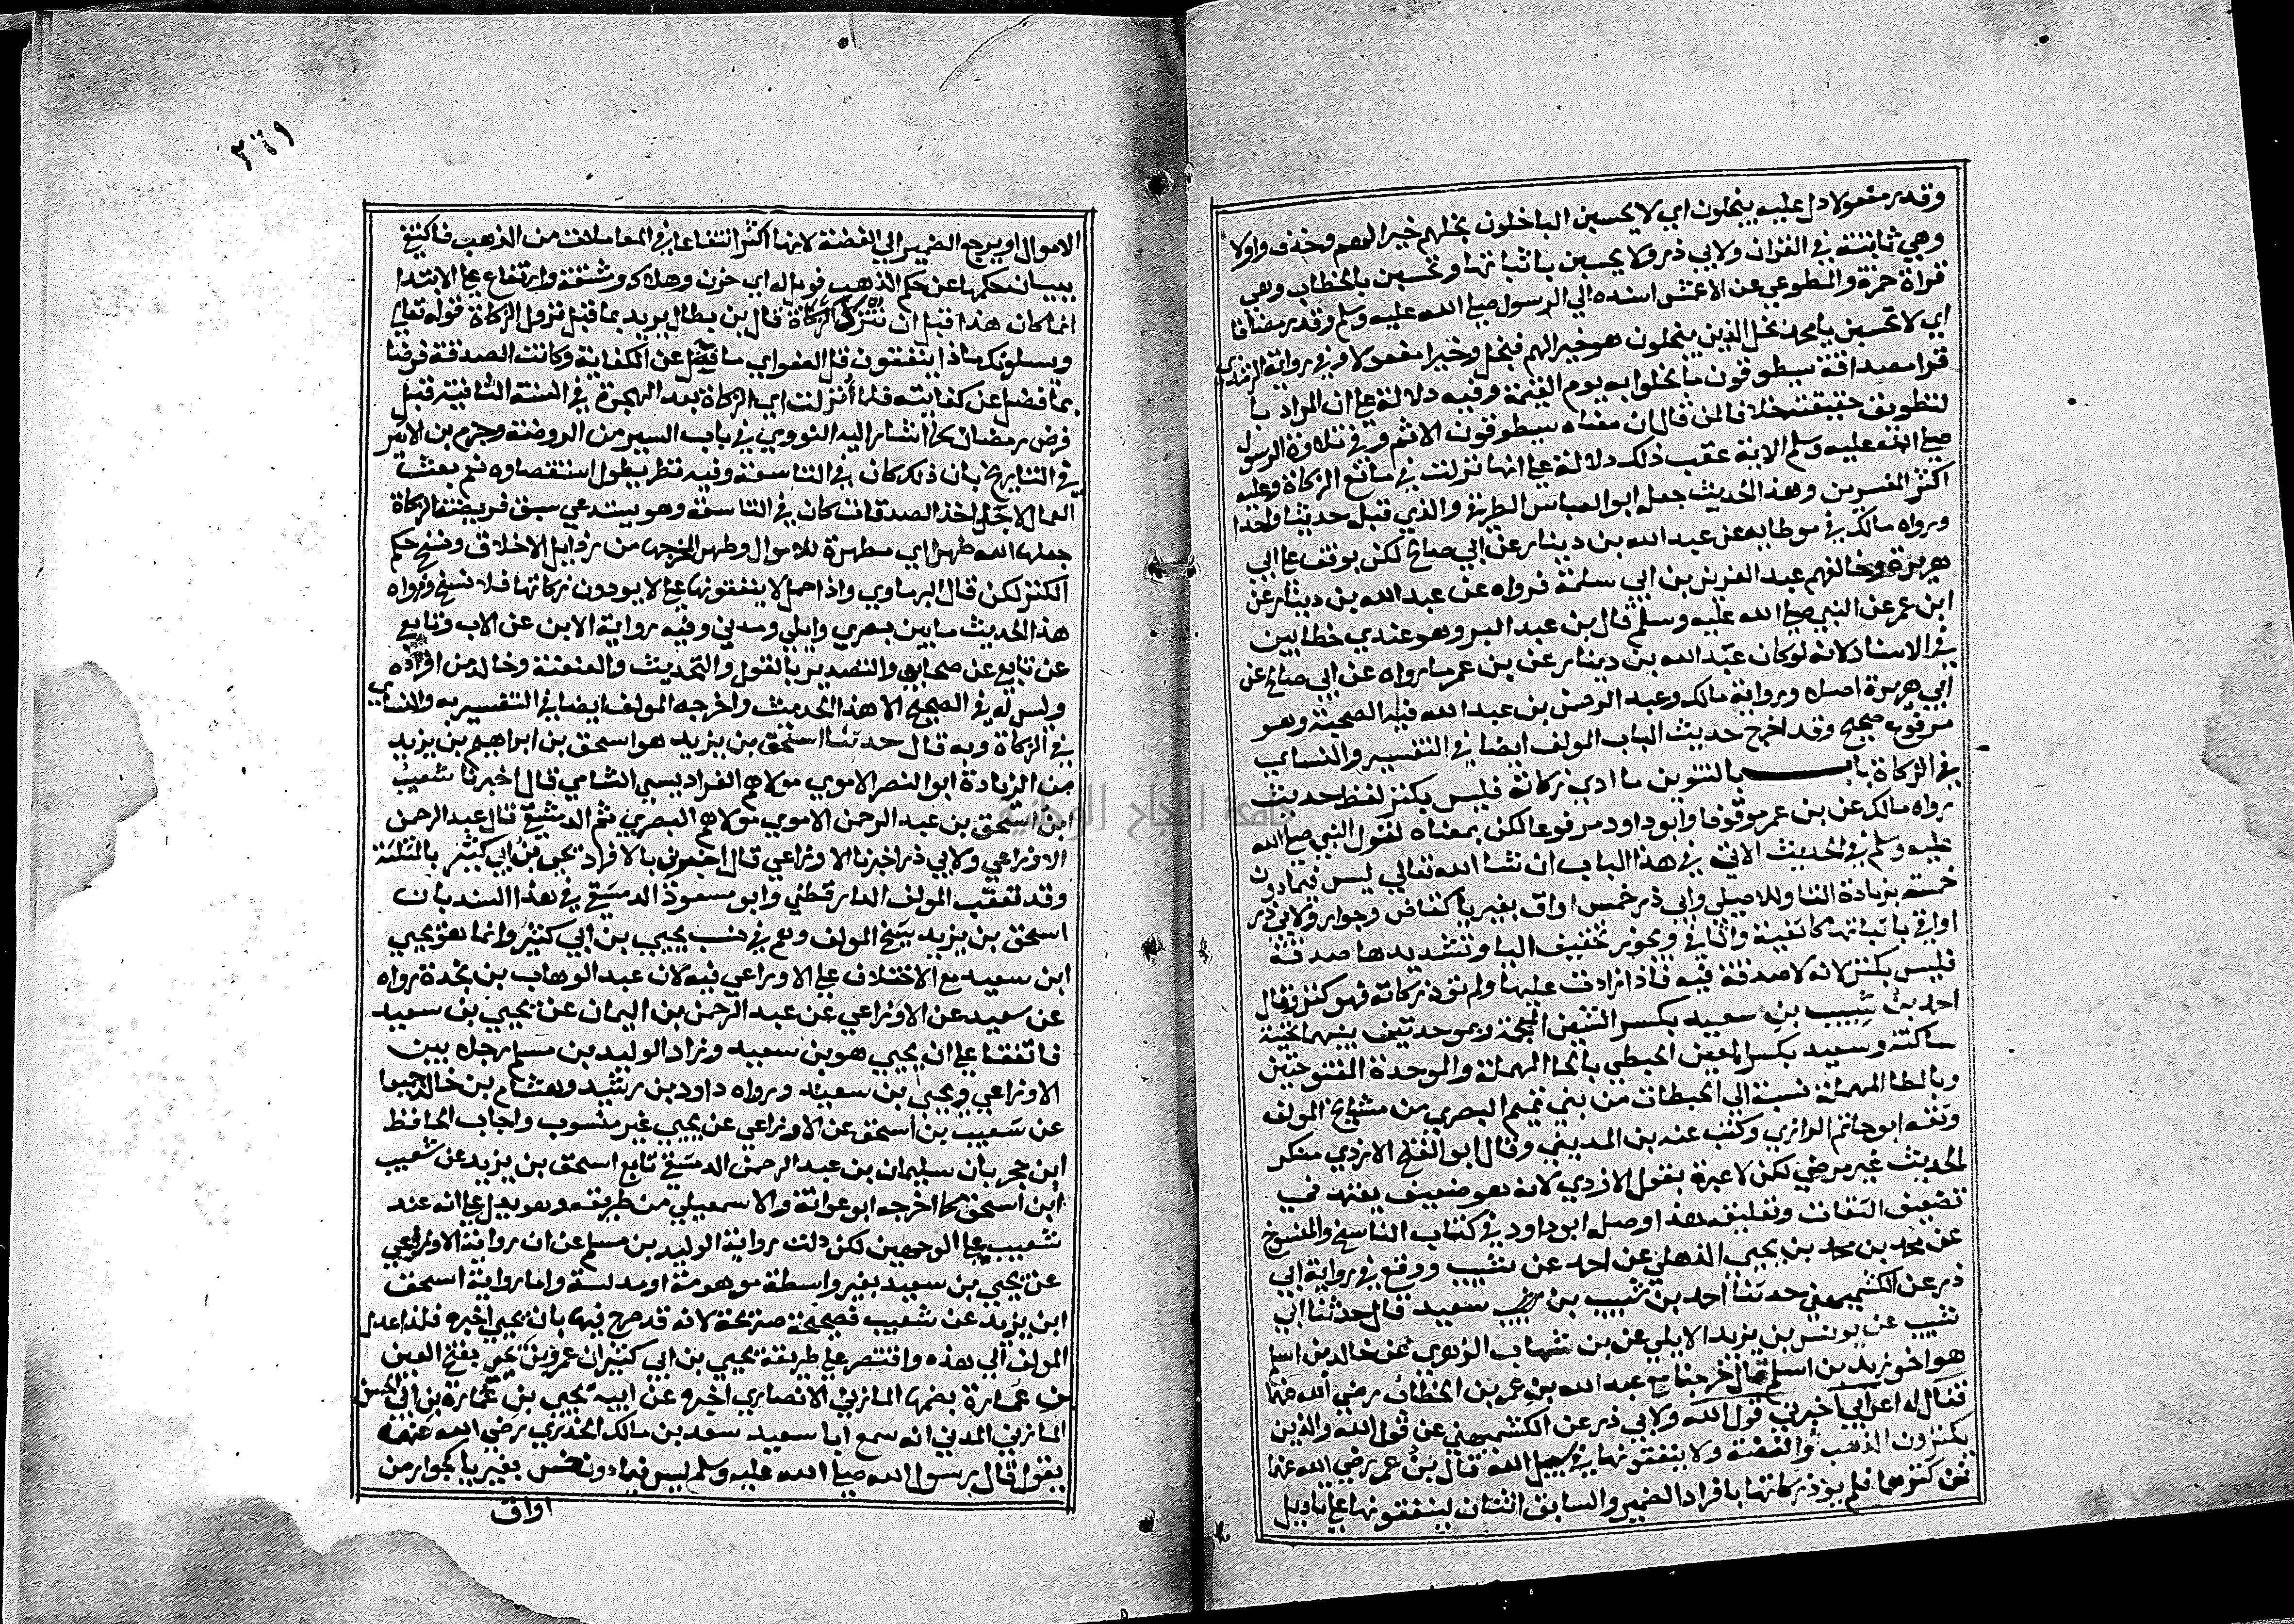 وقدر مفعولا دل عليه يبخلون اي لا يحسبن الباخلون بخلهم خيرا لهم وحذف واو ولا
وهي ثابتة في القران ولابي ذر ولا يحسبن باثباتها وتحسبن بالخطاب وهي
قراة حمزة والمطوعي عن الاعمش اسنده الي الرسول صلي الله عليه وسلم وقدر مضافا
اي لا تحسبن يا محمد بخل الذين يبخلون هو خيرا لهم فبخل وخيرا مفعولا وفي رواية الترمذي
قرا مصداقه سيطوقون ما بخلوا به يوم القيمة وفيه دلالة علي ان المراد با
لتطويق حقيقته خلافا لمن قال ان معناه سيطوقون الاثم وفي تلاوة الرسول
صلي الله عليه وسلم الاية عقب ذلك دلالة علي انها نزلت في مانع الزكاة وعليه
اكثر المفسرين وهذا الحديث جعله ابو العباس الطرقي والذي قبله حديثا واحدا
ورواه مالك في موطايه عن عبد الله بن دينار عن ابي صالح لكن بوقفه علي ابي
هريرة وخالفهم عبد العزيز بن ابي سلمة فرواه عن عبد الله بن دينار عن
ابن عمر عن النبي صلي الله عليه وسلم قال بن عبد البر وهو عندي خطا بين
في الاسناد لانه لو كان عبد الله بن دينار عن بن عمر ما رواه عن ابي صالح عن
ابي هريرة اصلا ورواية مالك وعبد الرحمن بن عبد الله فيه الصحيحة وهو
مرفوع صحيح وقد اخرج حديث الباب المولف ايضا في التفسير والنساي
في الزكاة باب بالتنوين ما ادي زكاته فليس بكنز لفظ حديث
رواه مالك عن بن عمر موقوفا وابو داود مرفوعا لكن بمعناه لقول النبي صلي الله
عليه وسلم في الحديث الاتي في هذا الباب ان شا الله تعالي ليس فيما دون
خمسة بزيادة التا وللاصيلي وابي ذر خمس اواق بغير يا كقاض وجوار ولابي ذر
اواقي باثباتها كاثفية واثافي ويجوز تخفيف اليا وتشديدها صدقة
فليس بكنز لانه لا صدقة فيه فاذا زادت عليها ولم تؤد زكاته فهو كنز وقال
احمد بن شبيب بن سعيد بكسر الشين المعجمة وبموحدتين بينهما تحتية
ساكنة وسعيد بكسر العين الحبطي بالحا المهملة والموحدة المفتوحتين
وبالطا المهملة نسبة الي الحبطات من بني تميم البصري من مشايخ المولف
وثقه ابو حاتم الرازي وكتب عنه بن المديني وقال ابو الفتح الازدي منكر
الحديث غير مرضي لكن لا عبرة بقول الازدي لانه هو ضعيف يعتمد في
تضعيف الثقات وتعليقه هذا وصله ابو داود في كتاب الناسخ والمنسوخ
عن محمد بن محمد بن يحيي الذهلي عن احمد عن شبيب ووقع في رواية ابي
ذر عن الكشميهني حدثنا احمد بن شبيب بن سعيد قال حدثنا ابي
شبيب عن يونس بن يزيد الايلي عن بن شهاب الزهري عن خالد بن اسلم
هو اخو زيد بن اسلم قال خرجنا مع عبد الله بن عمر بن الخطاب رضي الله عنهما
فقال له اعرابي اخبرني قول الله ولابي ذر عن الكشميهني عن قول الله والذين
يكنزون الذهب والفضة ولا ينفقونها في سبيل الله قال بن عمر رضي الله عنهما
من كنزها فلم يؤد زكاتها بافراد الضمير والسابق اثنتان لينفقونها علي تاويل
٣٦٩
الاموال او يرجع الضمير الي الفضة لانها اكثر انتفاعا في المعاملات من الذهب فاكتفي
ببيان حكمها عن حكم الذهب فويل له اي حزن وهلاك ومشقة وارتفاع علي الابتدا
انما كان هذا قبل ان تنزل الزكاة قال بن بطال يريد بما قبل نزول الزكاة قوله تعالي
ويسلونك ماذا ينفقون قل العفو اي ما فضل عن الكفاية وكانت الصدقة فرضا
بما فضل عن كفايته فلما انزلت اي الزكاة بعد الهجرة في السنة الثانية قبل
فرض رمضان كما اشار اليه النووي في باب السير من الروضة وجزم بن الاثير
في التاريخ بان ذلك كان في التاسعة وفيه نظر يطول استقصاوه ثم بعث
العمال لاجل اخذ الصدقات كان في التاسعة وهو يستدعي سبق فريضة الزكاة
جعلها الله طهرا اي مطهرة للاموال وطهر المخرجها من رذايل الاخلاق ونسخ حكم
الكنز لكن قال البرماوي واذا حمل لا ينفقونها علي لا يودون زكاتها فلا نسخ ورواه
هذا الحديث ما بين بصري وايلي ومدني وفيه رواية الابن عن الاب وتابع
عن تابع عن صحابي والتصدير بالقول والتحديث والعنعنة وخالد من افراده
وليس له في الصحيح الا هذا الحديث واخرجه المولف ايضا في التفسير به والنساي
في الزكاة وبه قال حدثنا اسحق بن يزيد هو اسحق بن ابراهيم بن يزيد
من الزيادة ابو النصر الاموي مولاهم الفراديسي الشامي قال اخبرنا شعيب
ابن اسحق بن عبد الرحمن الاموي مولاهم البصري ثم الدمشقي قال عبد الرحمن
الاوزاعي ولابي ذر اخبرنا الاوزاعي قال اخبرني بالافراد يحيي بن ابي كثير بالمثلثة
وقد تعقب المولف الدارقطني وابو مسعود الدمشقي في هذا السند بان
اسحق بن يزيد شيخ المولف وهم في نسب يحيي بن ابي كثير وانما هو يحيي
ابن سعيد مع الاختلاف علي الاوزاعي فيه لان عبد الوهاب بن نجدة رواه
عن سعيد عن الاوزاعي عن عبد الرحمن بن اليمان عن يحيي بن سعيد
فاتفقا علي ان يحيي هو بن سعيد وزاد الوليد بن مسلم رجلا بين
الاوزاعي ويحيي بن سعيد ورواه داود بن رشيد وهشام بن خالد جميعا
عن شعيب بن اسحق عن الاوزاعي عن يحيي غير منسوب واجاب الحافظ
ابن حجر بان سليمان بن عبد الرحمن الدمشقي تابع اسحق بن يزيد عن شعيب
ابن اسحق كما اخرجه ابو عوانة والاسمعيلي من طريقه وهو يدل علي انه عند
شعيب علي الوجهين لكن دلت رواية الوليد بن مسلم عن ان رواية الاوزاعي
عن يحيي بن سعيد بغير واسطة موهومة او مدلسة واما رواية اسحق
ابن يزيد عن شعيب فصحيحة صريحة لانه قد صرح فيها بان يحيي اخبره فلذا عدل
المولف الي هذه واقتصر علي طريقة يحيي بن ابي كثير ان عمرو بن يحيي بفتح العين
بن عمارة بضمها المازني الانصاري اخبره عن ابيه يحيي بن عمارة بن ابي الحسن
المازني المدني انه سمع ابا سعيد سعد بن مالك الخدري رضي الله عنه
يقول قال رسول الله صلي الله عليه وسلم ليس فيما دون خمس بغير يا كجوار من
اواق
جامعة النجاح الوطنية